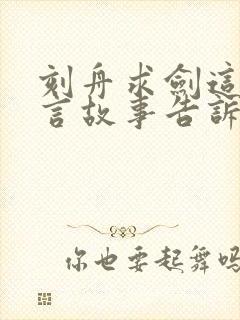 刻舟求劍這
言故事告訴
你也要起舞嗎